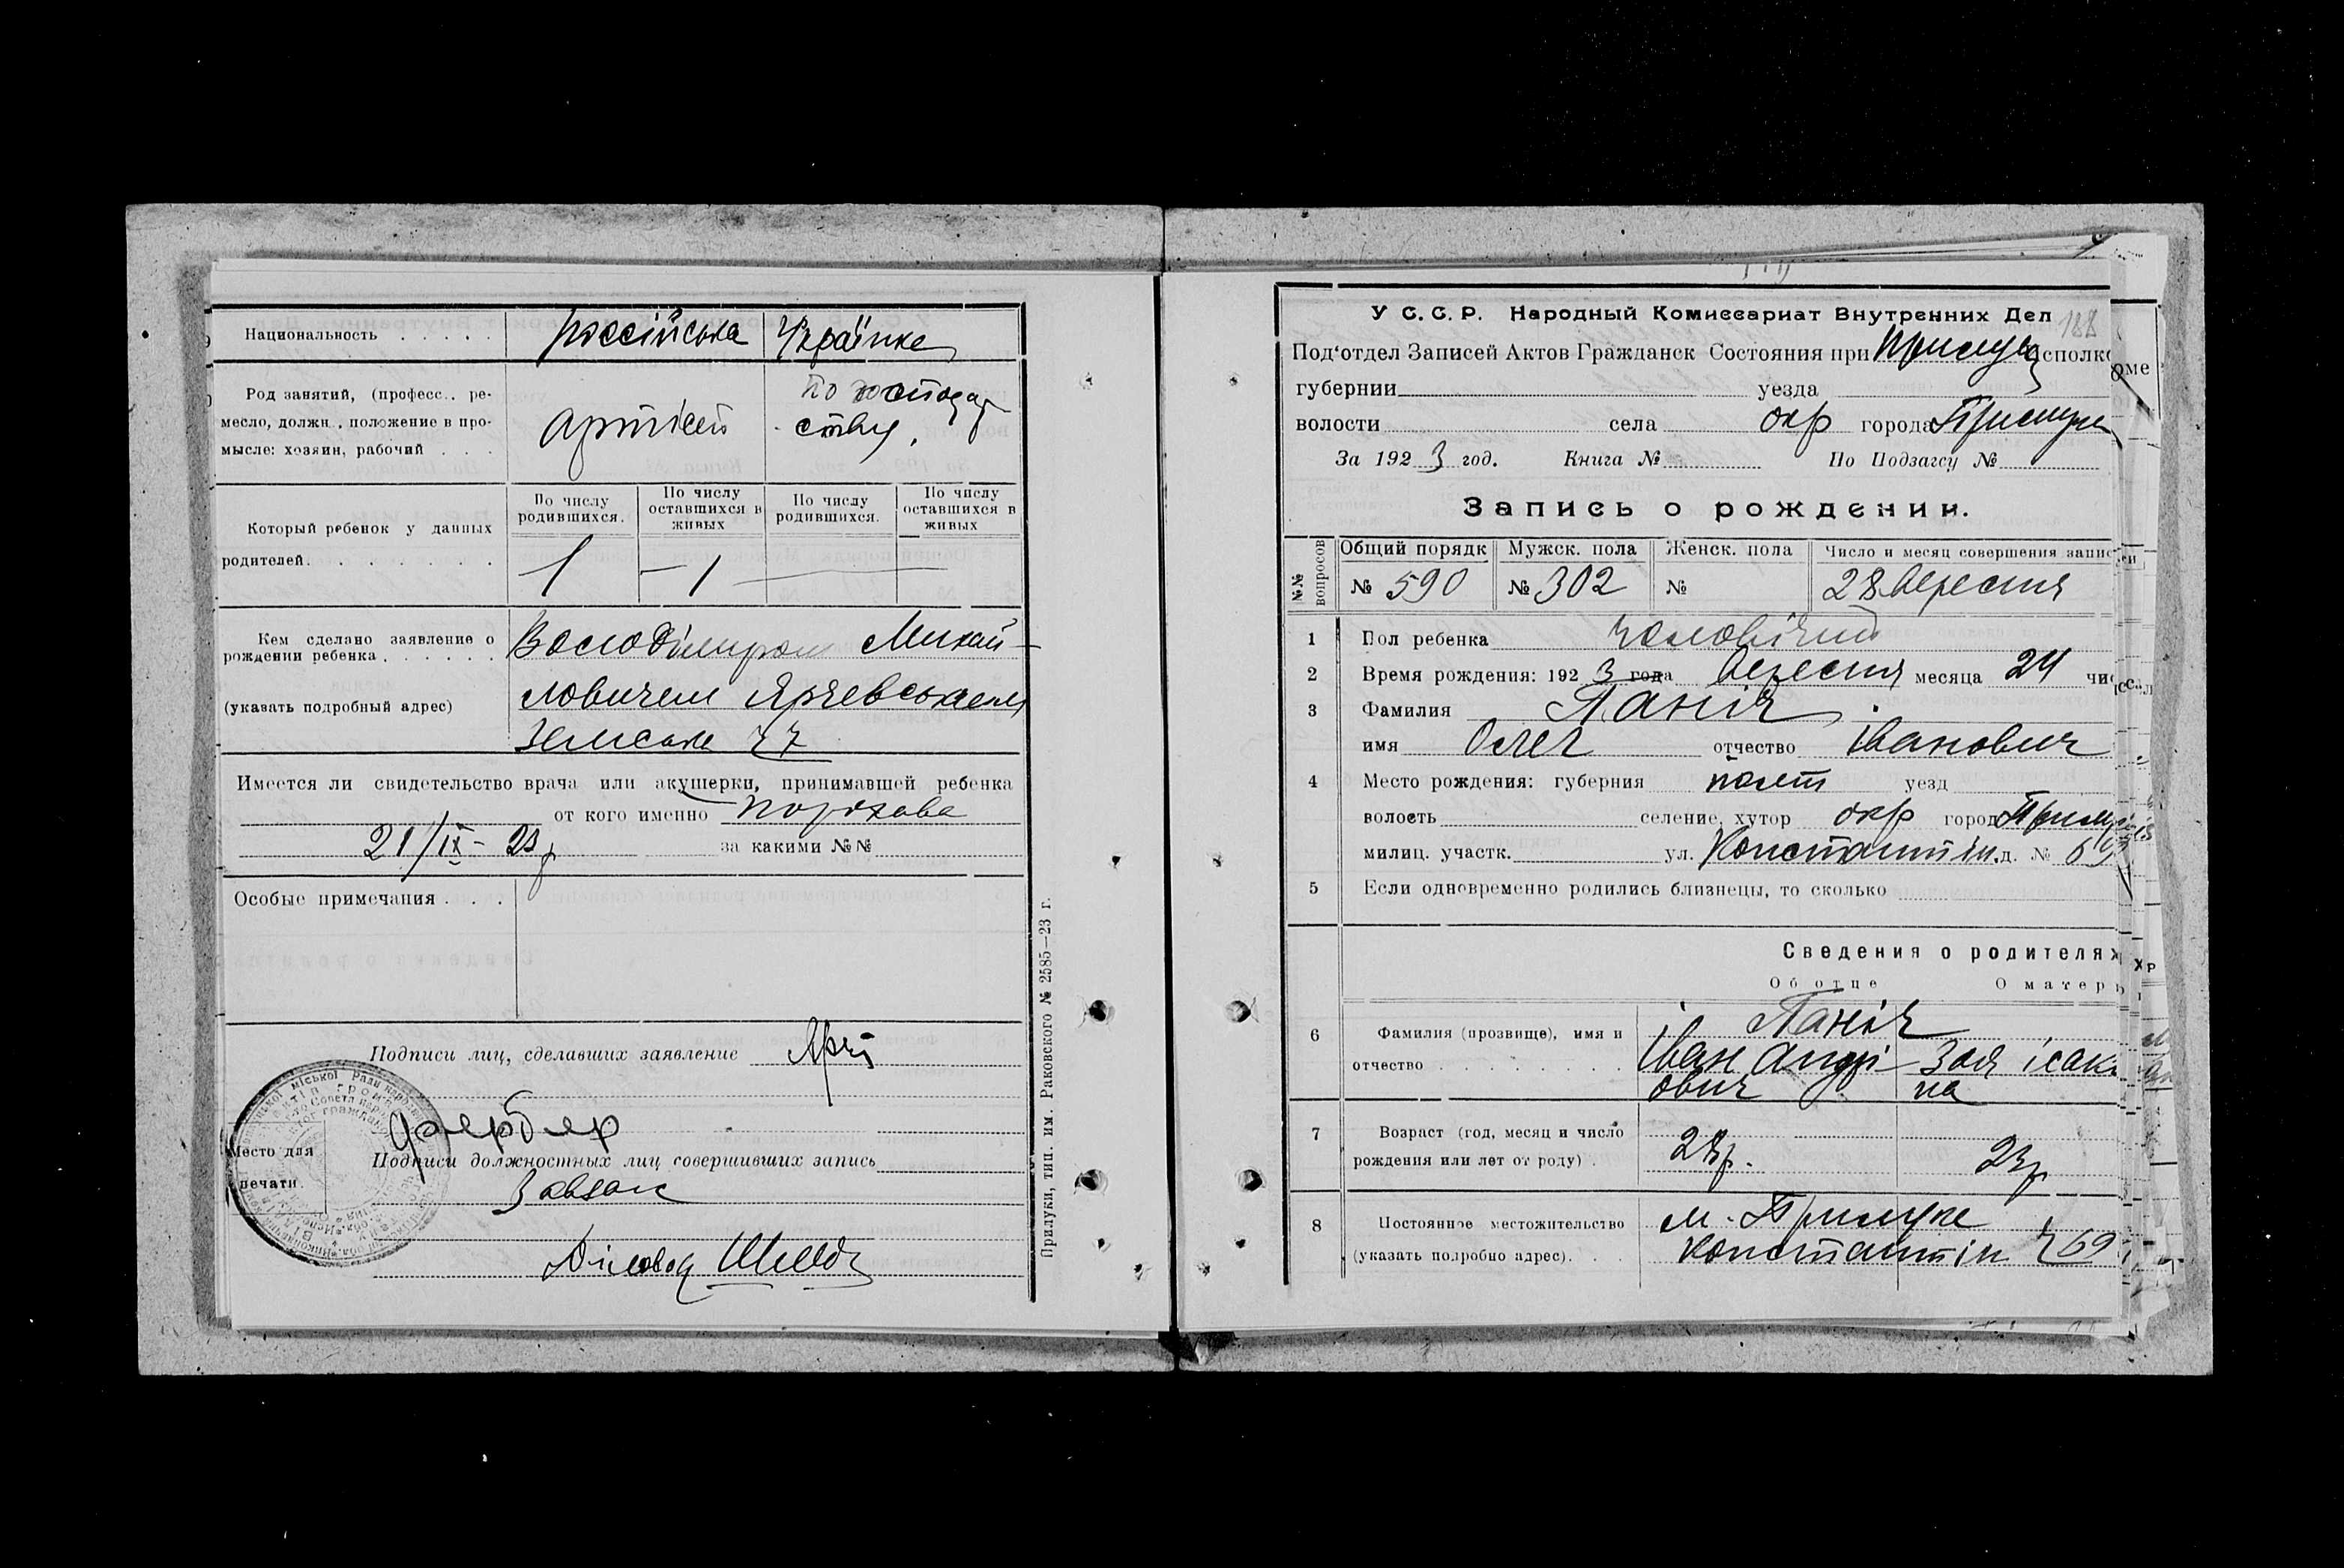 Национальность . . . . . російська Українка
Род занятий, (професс.. ре-
месло, должн., положение в про-
мысле: хозяин, рабочий . . .
артіст
по господар
ству.
Который ребенок у данных
родителей. . . . . . . .
По числу родившихся. По числу оставшихся в живых По числу родившихся. По числу оставшихся в живых
1 – 1
Кем сделано заявление о
рождении ребенка . . . . . .
(указать подробный адрес)
Володімиром Михай-
ловичем Ярчевським
Земська ч 7
Имеется ли свидетельство врача или акушерки, принимавшей ребенка
от кого именно Порохова
21/IX - 23 р за какими №№
Особые примечания . . .
Подписи лиц, сделавших заявление
Место для
печати.
Подписи должностных лиц совершивших запись
Завзагс
Діловод
Прилуки, тип. им. Раковского № 2585—23 г.
188
У С. С. Р. Народный Комиссариат Внутренних Дел
Под'отдел Записей Актов Гражданск Состояния при Прилуц
губернии уезда
волости села окр города Прилуки
За 192 3 год. Книга № По Подзагсу №
Запись о рождении.
№№ вопросов
Общий порядк Мужск. пола Женск. пола Число и месяц совершения запис
№ 590 № 302 № 28 вересня
1 Пол ребенка чоловічий
2 Время рождения: 192 3 года вересня месяца 24
3 Фамилия Паніч
имя Олег отчество Іванович
4 Место рождения: губерния полт уезд
волость селение, хутор окр город Прилуки
милиц. участк. ул. Константін. д. № 69
5 Если одновременно родились близнецы, то сколько
Сведения о родителях
Об отце О матер
6 Фамилия (прозвище), имя и
отчество . . . . . . . .
Паніч
Іван Андрі-
ович
Зоя Ісаки
на
7 Возраст (год, месяц и число
рождения или лет от роду) .
28 р. 23 р
8 Постоянное местожительство
(указать подробно адрес). . .
м. Прилуке
Константін ч 69